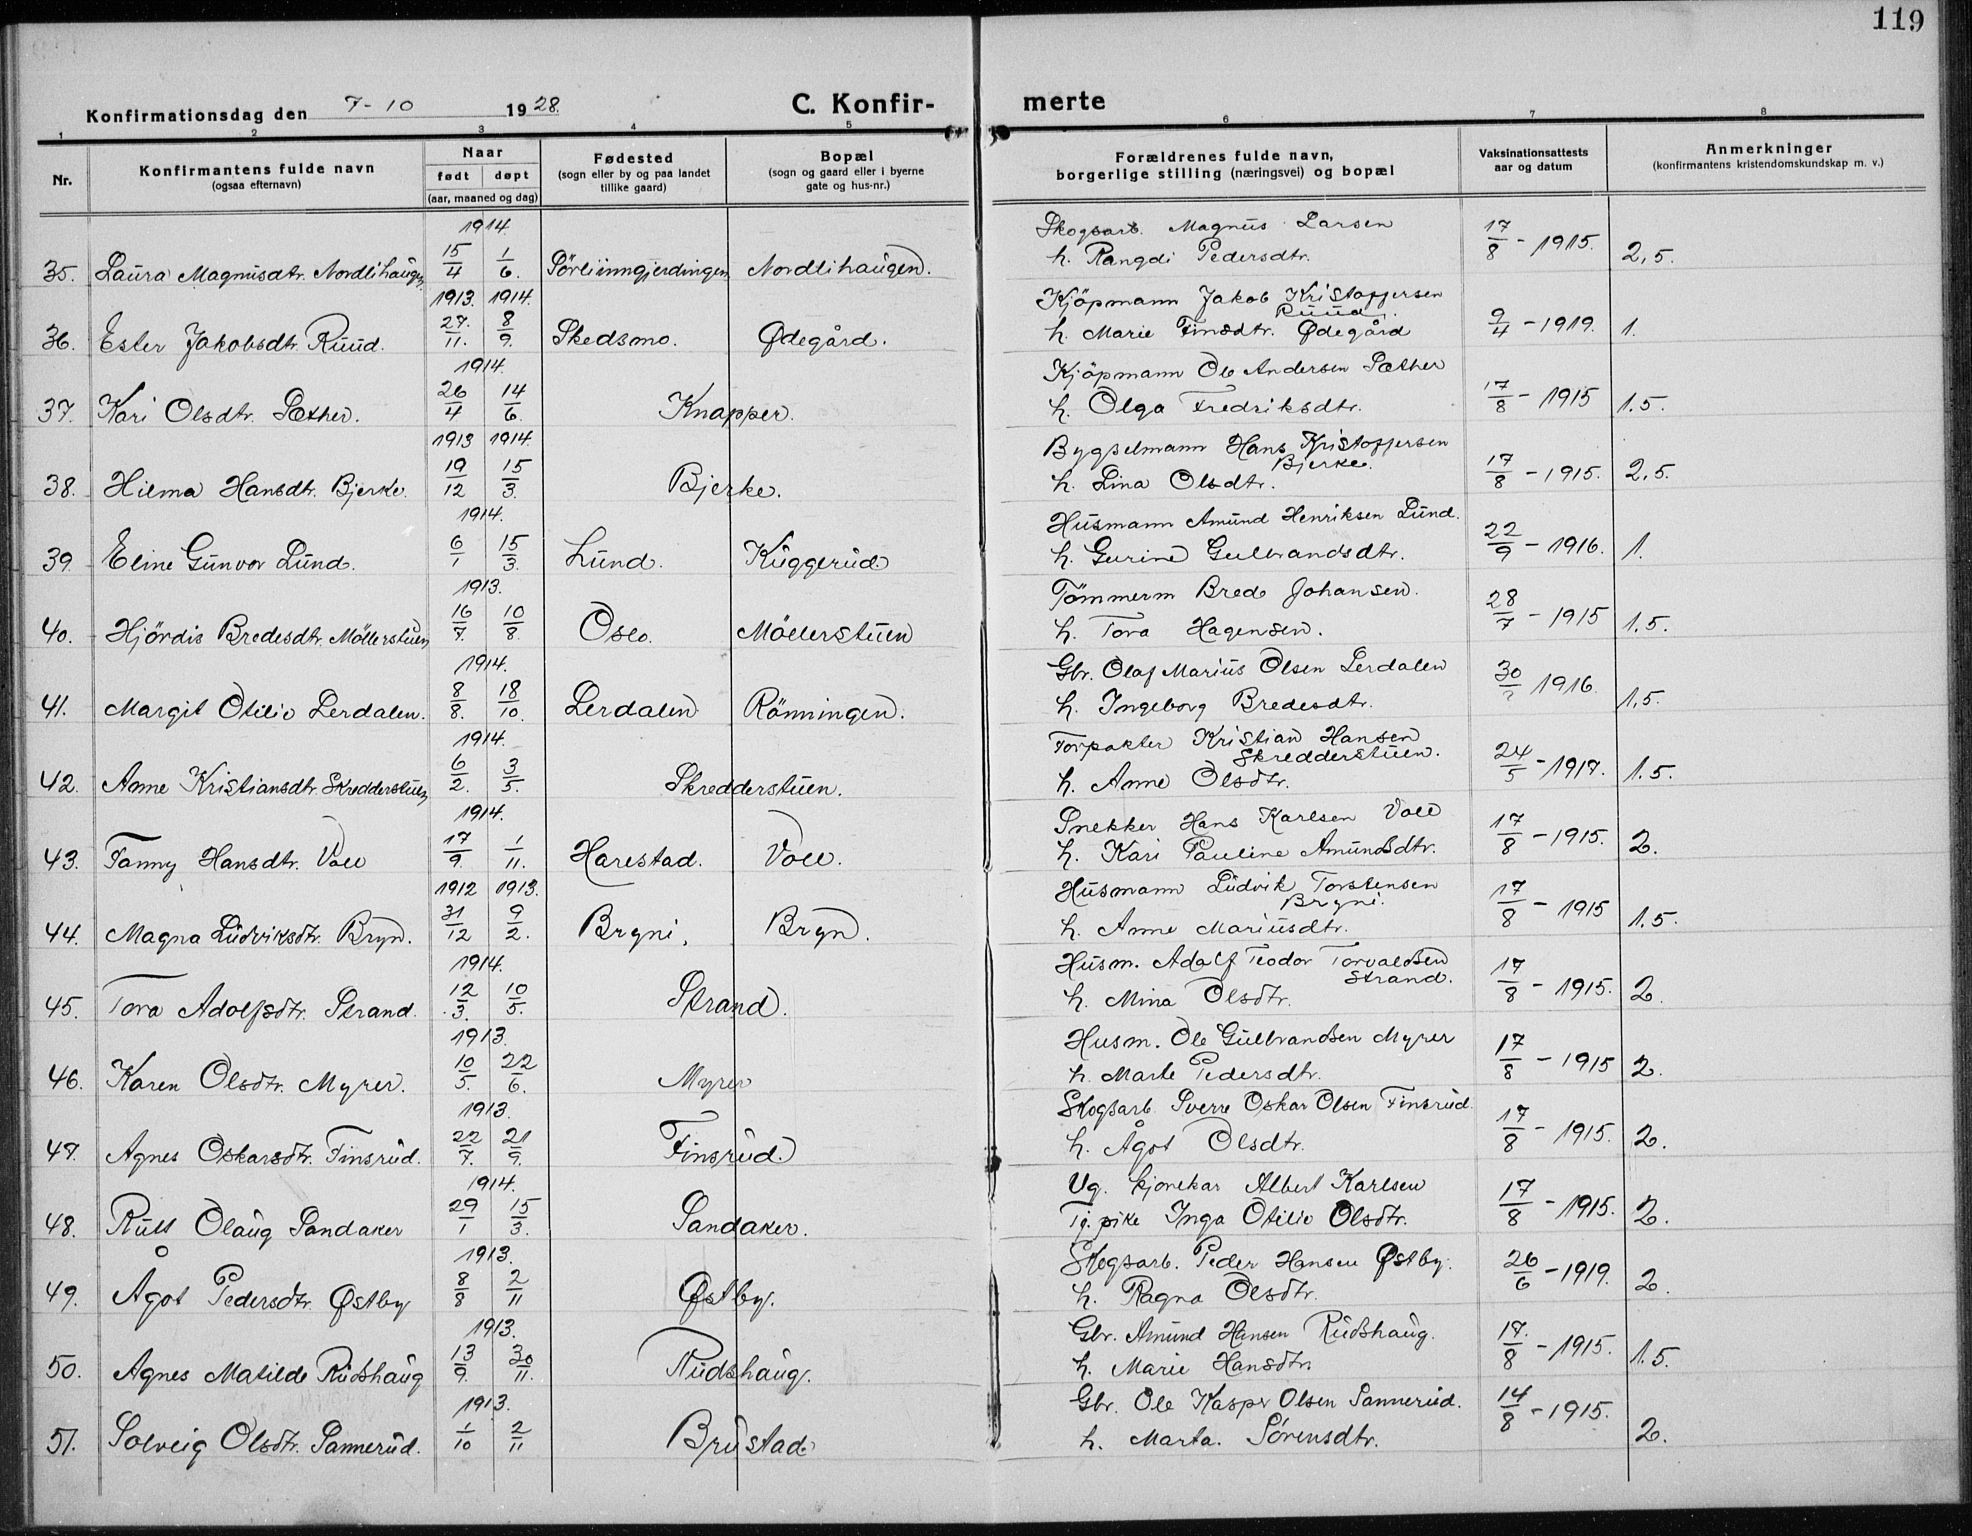 119
Konfirmationsdag den 7-10 1928. C. Konfir- merte
1 2 3 4 5 6 7 8
Nr. | Konfirmantens fulde navn (ogsaa efternavn) | Naar født døpt (aar, maaned og dag) | Fødested (sogn eller by og paa landet tillike gaard) | Bopæl (sogn og gaard eller i byerne gate og hus-nr.) | Forældrenes fulde navn, borgerlige stilling (næringsvei) og bopæl | Vaksinationsattests aar og datum | Anmerkninger (konfirmantens kristendomskundskap m. v.)
1914. Skogsarb. Magnus Larsen
35. Laura Magnusdtr. Nordlihaugen. 15/4 1/6. Sörliinngjerdingen Nordlihaugen. h. Rangdi Pedersdtr. 17/8 - 1915. 2,5.
1913. 1914. Kjöpmann Jakob Kristoffersen Ruud.
36. Ester Jakobsdtr. Ruud. 27./11. 8/9. Skedsmo. Ødegård. h. Marie Finsdtr. Ødegård 9/4 - 1919. 1.
1914. Kjöpmann Ole Andersen Sæther
37. Kari Olsdtr. Sæther. 26/4 14/6. Knapper. h. Olga Fredriksdtr. 17/8 - 1915 1.5.
1913 1914. Bygselmann Hans Kristoffersen Bjerke.
38. Hilma Hansdtr. Bjerke. 19/12 15/3. Bjerke. h. Lina Olsdtr. 17/8 - 1915. 2,5.
1914. Husmann Amund Henriksen Lund.
39. Eline Gunvor Lund. 6/1 15/3. Lund. Kuggerud. h. Gurine Gulbrandsdtr. 22/9 - 1916. 1.
1913. Tömmerm Brede Johansen.
40. Hjördis Bredesdtr. Möllerstuen 16/7. 10/8. Oslo. Möllerstuen h. Tora Hagensen. 28/7 - 1915 1.5.
1914. Gbr. Olaf Marius Olsen Lerdalen
41. Margit Otilie Lerdalen. 8/8. 18/10. Lerdalen Rönningen. h. Ingeborg Bredesdtr. 30/? 1916. 1,5.
1914. Forpakter Kristian Hansen Skredderstuen.
42. Anne Kristiansdtr. Skredderstuen 6/2. 3/5. Skredderstuen. h. Anne Olsdtr. 24/5 - 1917. 1.5.
1914. Snekker Hans Karlsen Voll
43. Fanny Hansdtr. Voll 17/9. 1/11. Harestad. Voll. h. Kari Pauline Amundsdtr. 17/8 - 1915. 2.
1912 1913. Husmann Ludvik Torstensen Bryni.
44. Magna Ludviksdtr. Bryn. 31/12 9/2. Bryni. Bryn. h. Anne Mariusdtr. 17/8 - 1915 1.5.
1914. Husm. Adolf Teodor Torvaldsen Strand.
45. Tora Adolfsdtr. Strand. 12/3. 10/5. Strand. h. Mina Olsdtr. 17/8 - 1915. 2.
1913. Husm. Ole Gulbrandsen Myrer
46. Karen Olsdtr. Myrer. 10/5. 22/6. Myrer h. Marte Pedersdtr. 17/8 - 1915 2.
1913. Skogsarb. Sverre Oskar Olsen Finsrud.
47. Agnes Oskarsdtr. Finsrud. 22/7. 21/9. Finsrud. h. Ågot Olsdtr. 17/8 - 1915. 2.
1914. Ug. kjørekar Albert Karlsen
48. Rutt Olaug Sandaker 29/1 15/3. Sandaker. Tj. pike Inga Otilie Olsdtr. 17/8 - 1915. 2.
1913. Skogsarb. Peder Hansen Østby.
49. Ågot Pedersdtr. Østby 8/8 2/11 Østby. h. Ragna Olsdtr. 26/6 - 1919. 2.
1913. Gbr. Amund Hansen Rudshaug.
50. Agnes Matilde Rudshaug 13/9. 30/11. Rudshaug. h. Marie Hansdtr. 17./8 - 1915. 1.5.
1913. Gbr. Ole Kaspr Olsen Sannerud.
51. Solveig Olsdtr. Sannerud. 1/10 2/11 Brustad. h. Marta. Sörensdtr. 14/8 - 1915. 2.